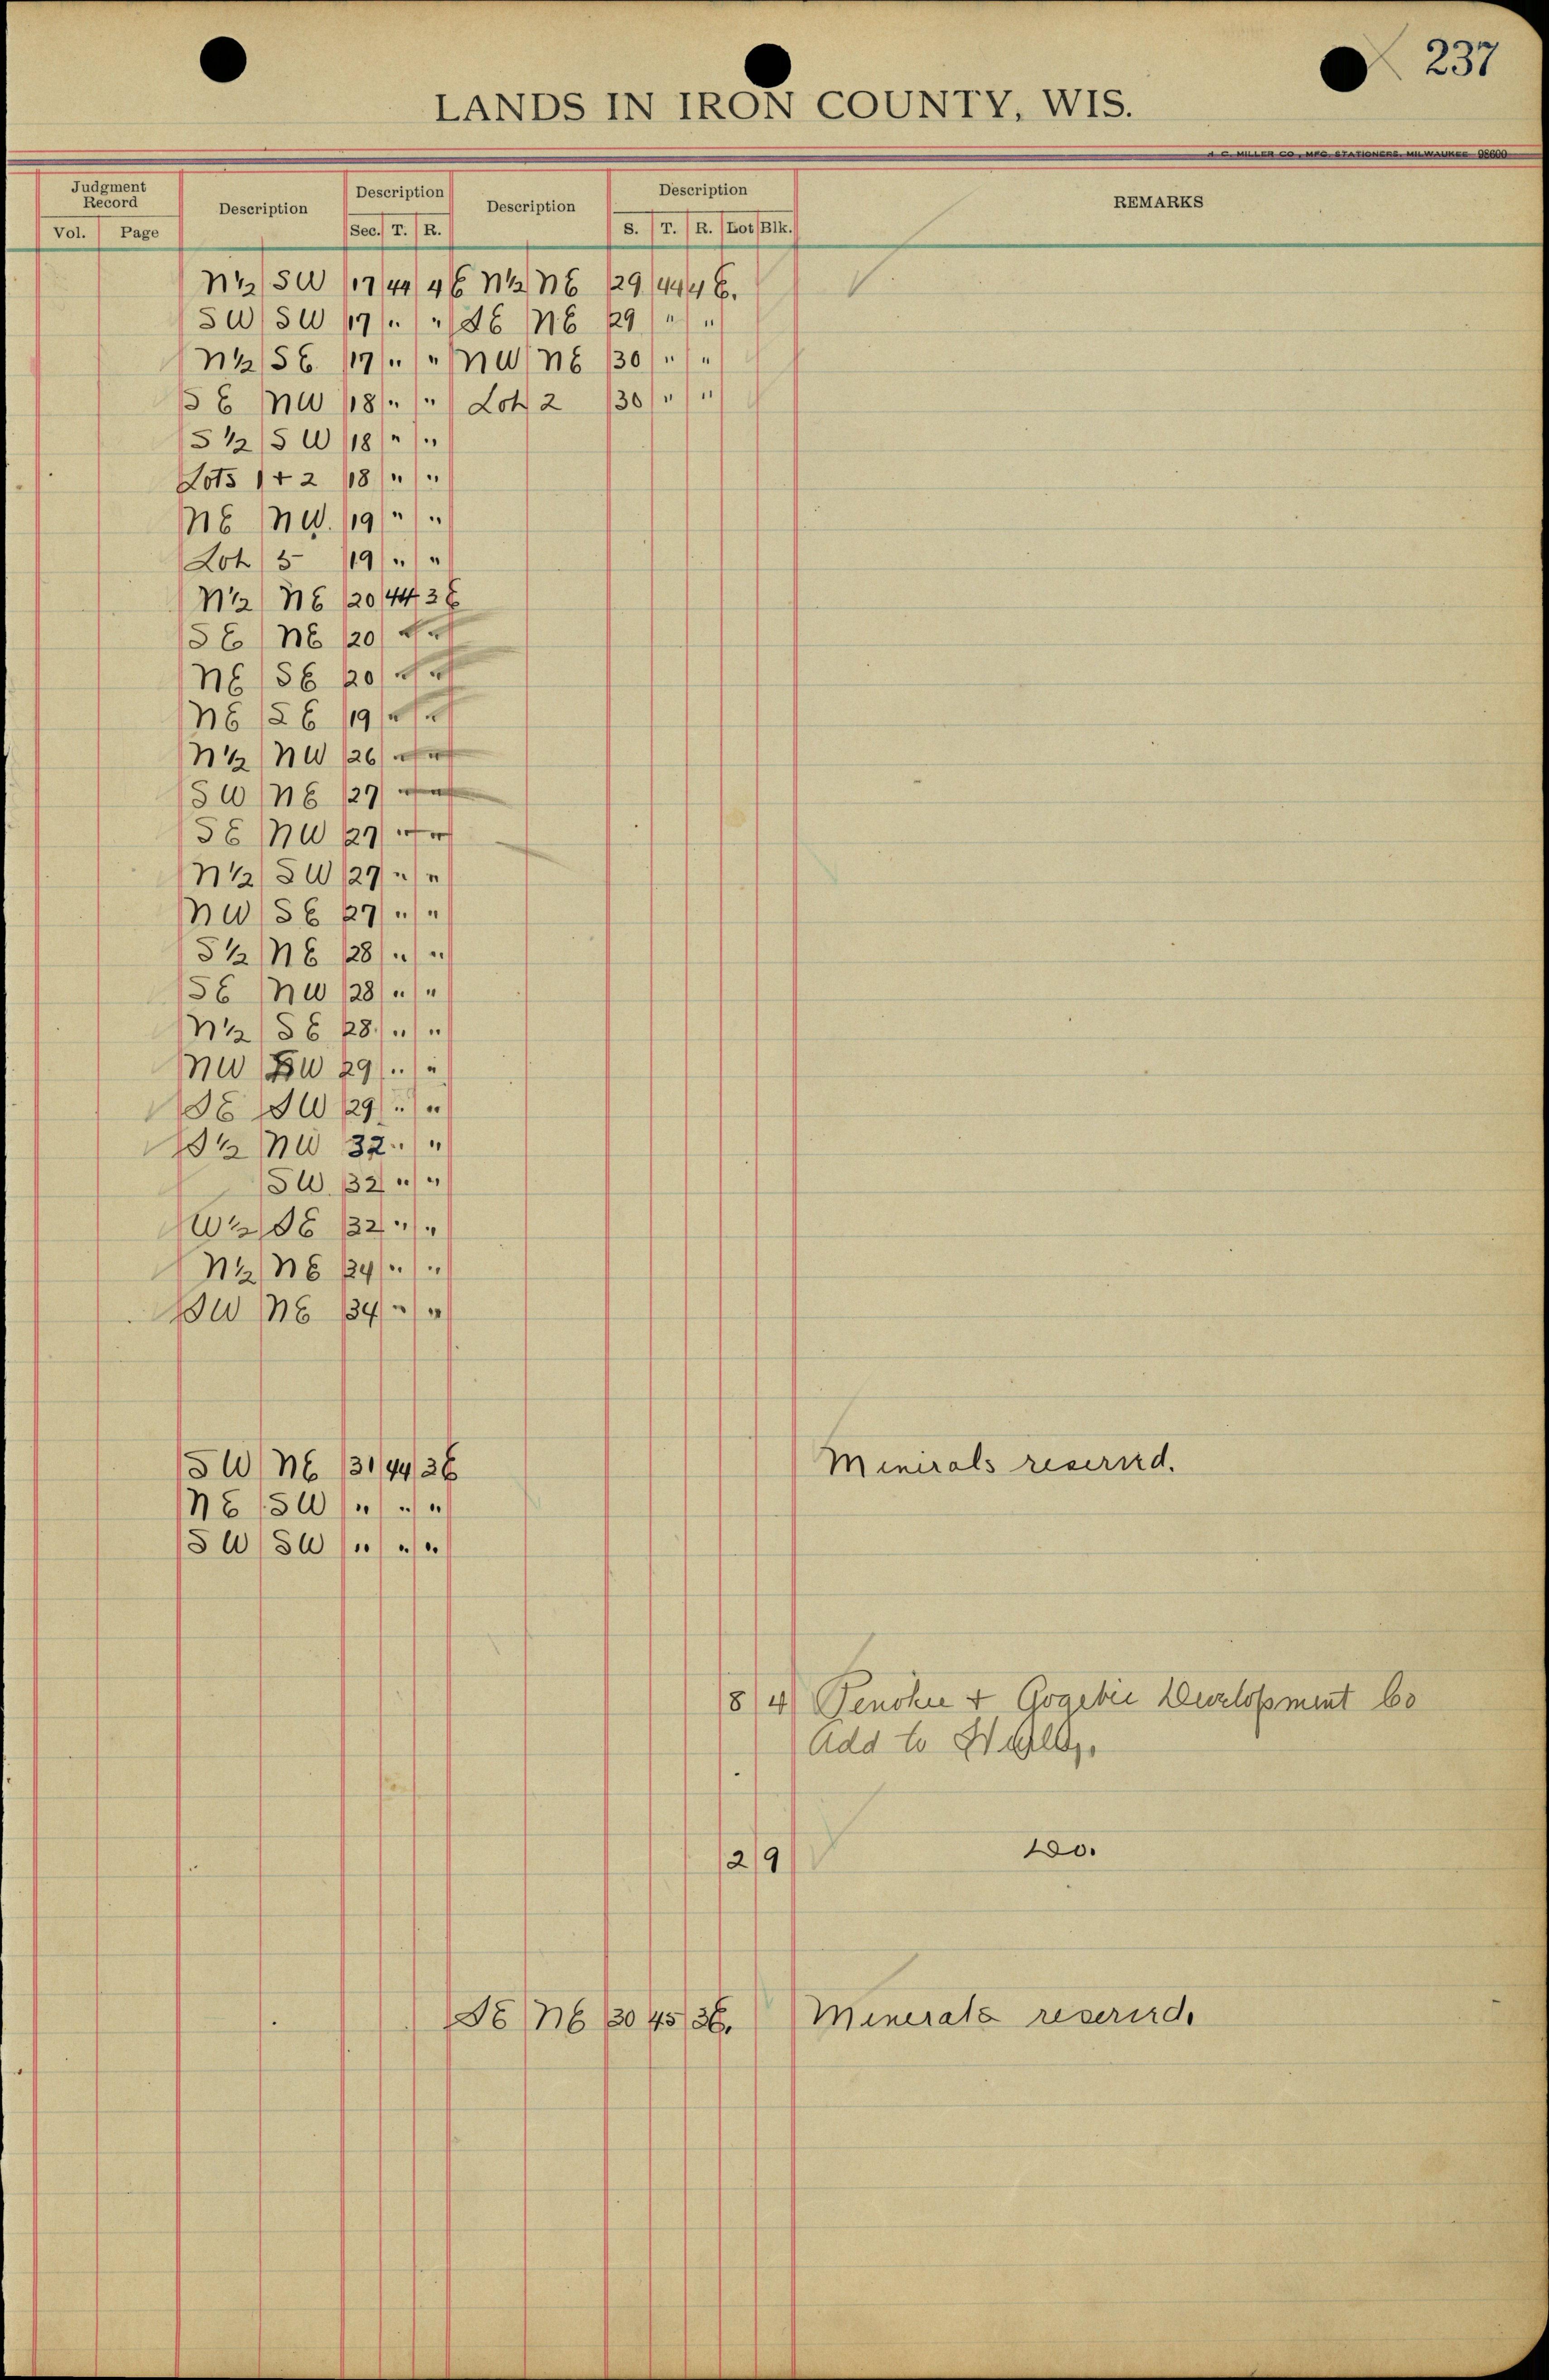 237
LANDS IN IRON COUNTY, WIS.
H. C. MILLER CO., MFG. STATIONERS, MILWAUKEE 98600
Judgment Record Description Description Description Description REMARKS
Vol. Page Sec. T. R. S. T. R. Lot Blk.
N½ SW 17 44 4E N½ NE 29 44 4E.
SW SW 17 " " SE NE 29 " "
N½ SE 17 " " NW NE 30 " "
SE NW 18 " " Lot 2 30 " "
S½ SW 18 " "
Lots 1 + 2 18 " "
NE NW. 19 " "
Lot 5 19 " "
N½ NE 20 44 3E
SE NE 20 " "
NE SE 20 " "
NE SE 19 " "
N½ NW 26 " "
SW NE 27 " "
SE NW 27 " "
N½ SW 27 " "
NW SE 27 " "
S½ NE 28 " "
SE NW 28 " "
N½ SE 28 " "
NW SW 29 " "
SE SW 29 " "
S½ NW 32 " "
SW. 32 " "
W½ SE 32 " "
N½ NE 34 " "
SW NE 34 " "
SW NE 31 44 3E Minirals reserved.
NE SW " " "
SW SW " " "
8 4 Penokee + Gogebic Development Co
Add to Hurley.
2 9 Do.
SE NE 30 45 3E. Minerals reserved.